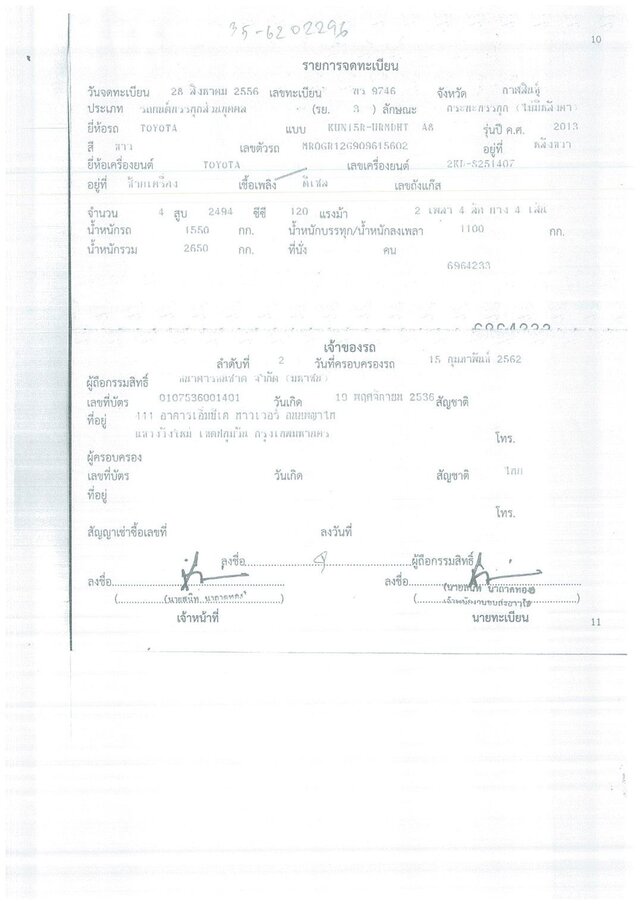 35-6202296
10
รายการจดทะเบียน
วันจดทะเบียน 28 สิงหาคม 2556 เลขทะเบียน 9746 จังหวัด กาฬสินธุ์
ประเภท รถยนต์บรรทุกส่วนบุคคล (รย. 3 ) ลักษณะ กระบะบรรทุก (ไม่มีหลังคา)
ยี่ห้อรถ TOYOTA แบบ รุ่นปี ค.ศ. 2013
สี ขาว เลขตัวรถ MR0GR12G909615602 อยู่ที่
ยี่ห้อเครื่องยนต์ TOYOTA เลขเครื่องยนต์ 2KD-S251407
อยู่ที่ เชื้อเพลิง ดีเซล เลขถังแก๊ส
จำนวน 4 สูบ 2494 ซีซี 120 แรงม้า 2 เพลา 4 ล้อ ยาง 4 เส้น
น้ำหนักรถ 1550 กก. น้ำหนักบรรทุก/น้ำหนักลงเพลา 1100 กก.
น้ำหนักรวม 2650 กก. ที่นั่ง คน
6964233
6964233
เจ้าของรถ
ลำดับที่ 2 วันที่ครอบครองรถ 15 กุมภาพันธ์ 2562
ผู้ถือกรรมสิทธิ์ ธนาคารธนชาต จำกัด (มหาชน)
เลขที่บัตร 0107536001401 วันเกิด 19 พฤศจิกายน 2536 สัญชาติ
ที่อยู่ 444 อาคารเอ็มบีเค ทาวเวอร์ ถนนพญาไท
แขวงวังใหม่ เขตปทุมวัน กรุงเทพมหานคร
โทร.
ผู้ครอบครอง
เลขที่บัตร วันเกิด สัญชาติ ไทย
ที่อยู่
โทร.
สัญญาเช่าซื้อเลขที่ ลงวันที่
ลงชื่อ ผู้ถือกรรมสิทธิ์
ลงชื่อ ลงชื่อ
เจ้าหน้าที่ นายทะเบียน
11